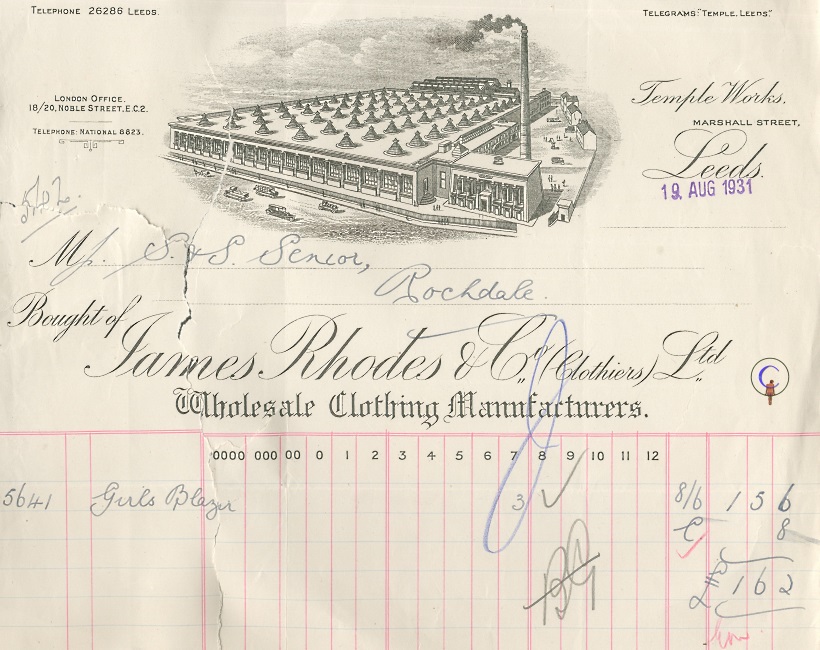 TELEPHONE 26286 LEEDS.
TELEGRAMS: "TEMPLE, LEEDS."
LONDON OFFICE,
18/20, NOBLE STREET, E.C.2.
TELEPHONE: NATIONAL 8823.
Temple Works,
MARSHALL STREET,
Leeds.
19 AUG 1931
Mr. S. & S. Senior,
Rochdale.
Bought of
James Rhodes & Co. (Clothiers) Ltd
Wholesale Clothing Manufacturers.
0000 000 00 0 1 2 3 4 5 6 7 8 9 10 11 12
5641 Girls Blazer 3 8/6 1 5 6
C 8
1 6 2